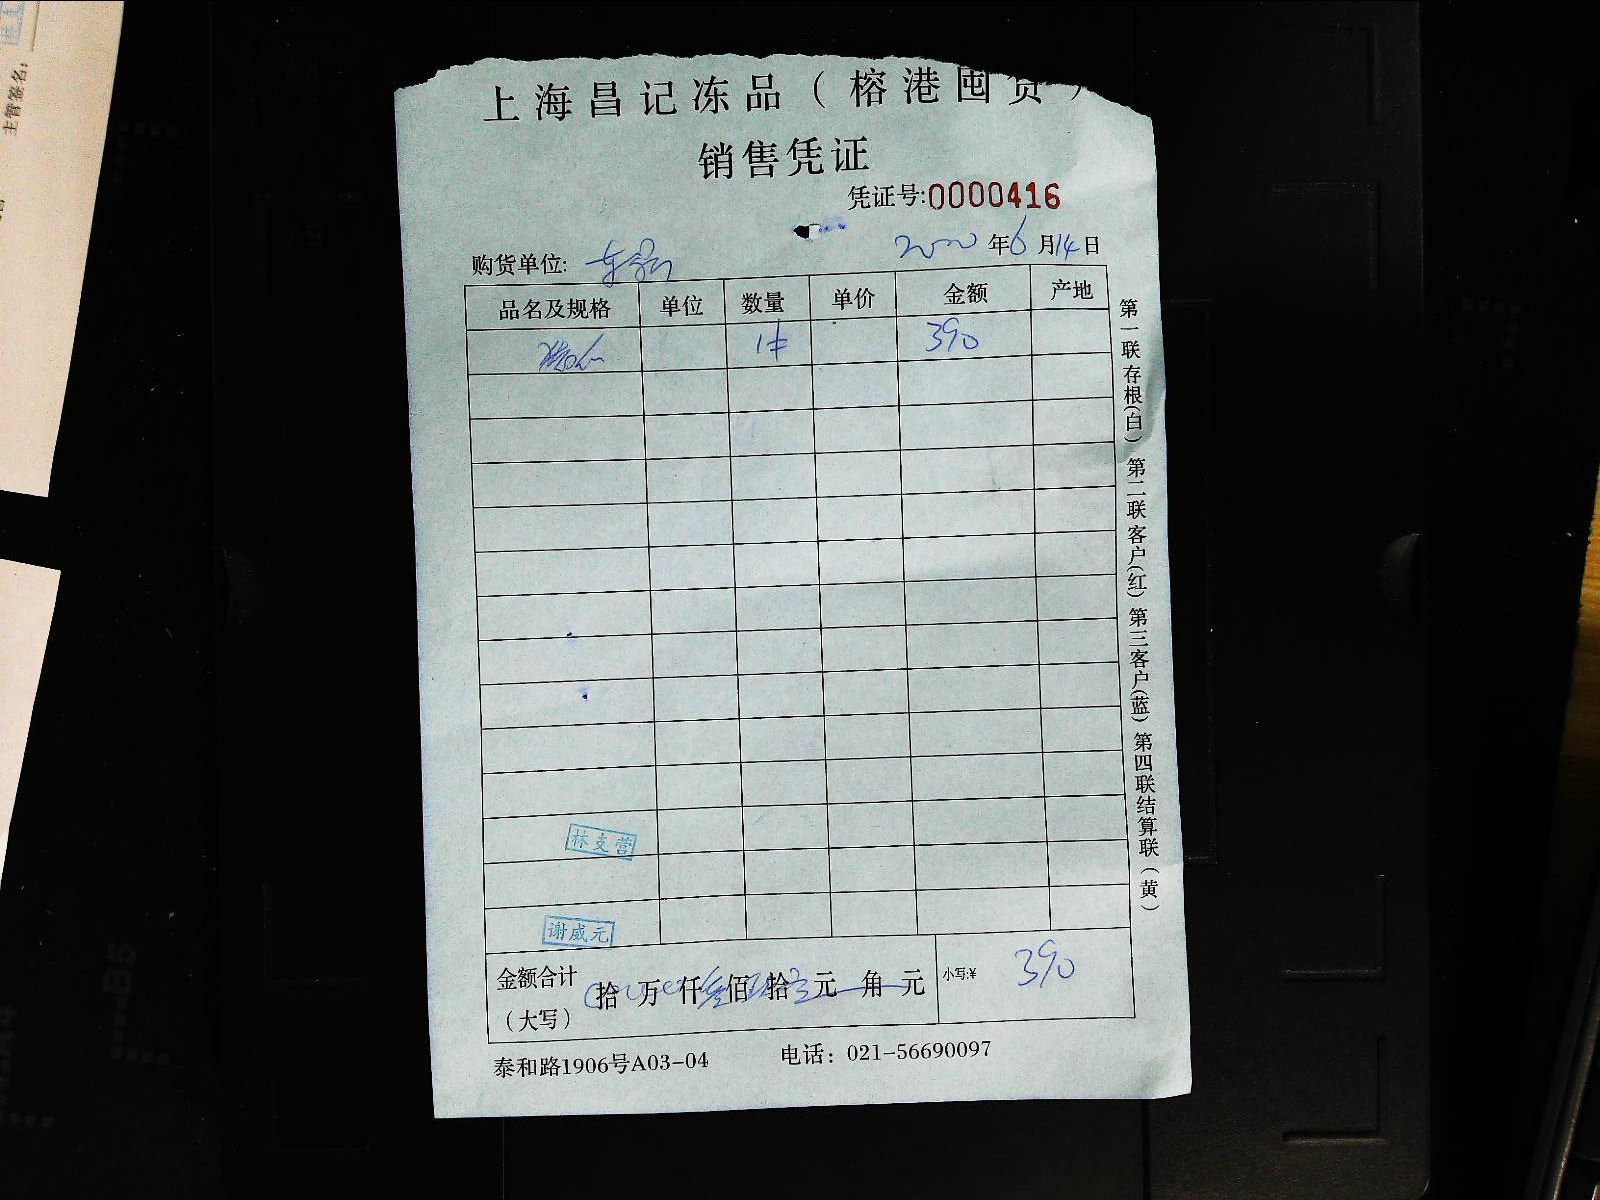 上海昌记冻品（榕港囤货）
销售凭证
凭证号:0000416
购货单位: 2020年6月14日
品名及规格 单位 数量 单价 金额 产地
1 390
林支营
谢威元
金额合计（大写） 拾 万 仟叁佰 拾 元 角 元 小写:¥ 390
泰和路1906号A03-04 电话：021-56690097
第一联存根(白) 第二联客户(红) 第三客户(蓝) 第四联结算联（黄）
主管签名: